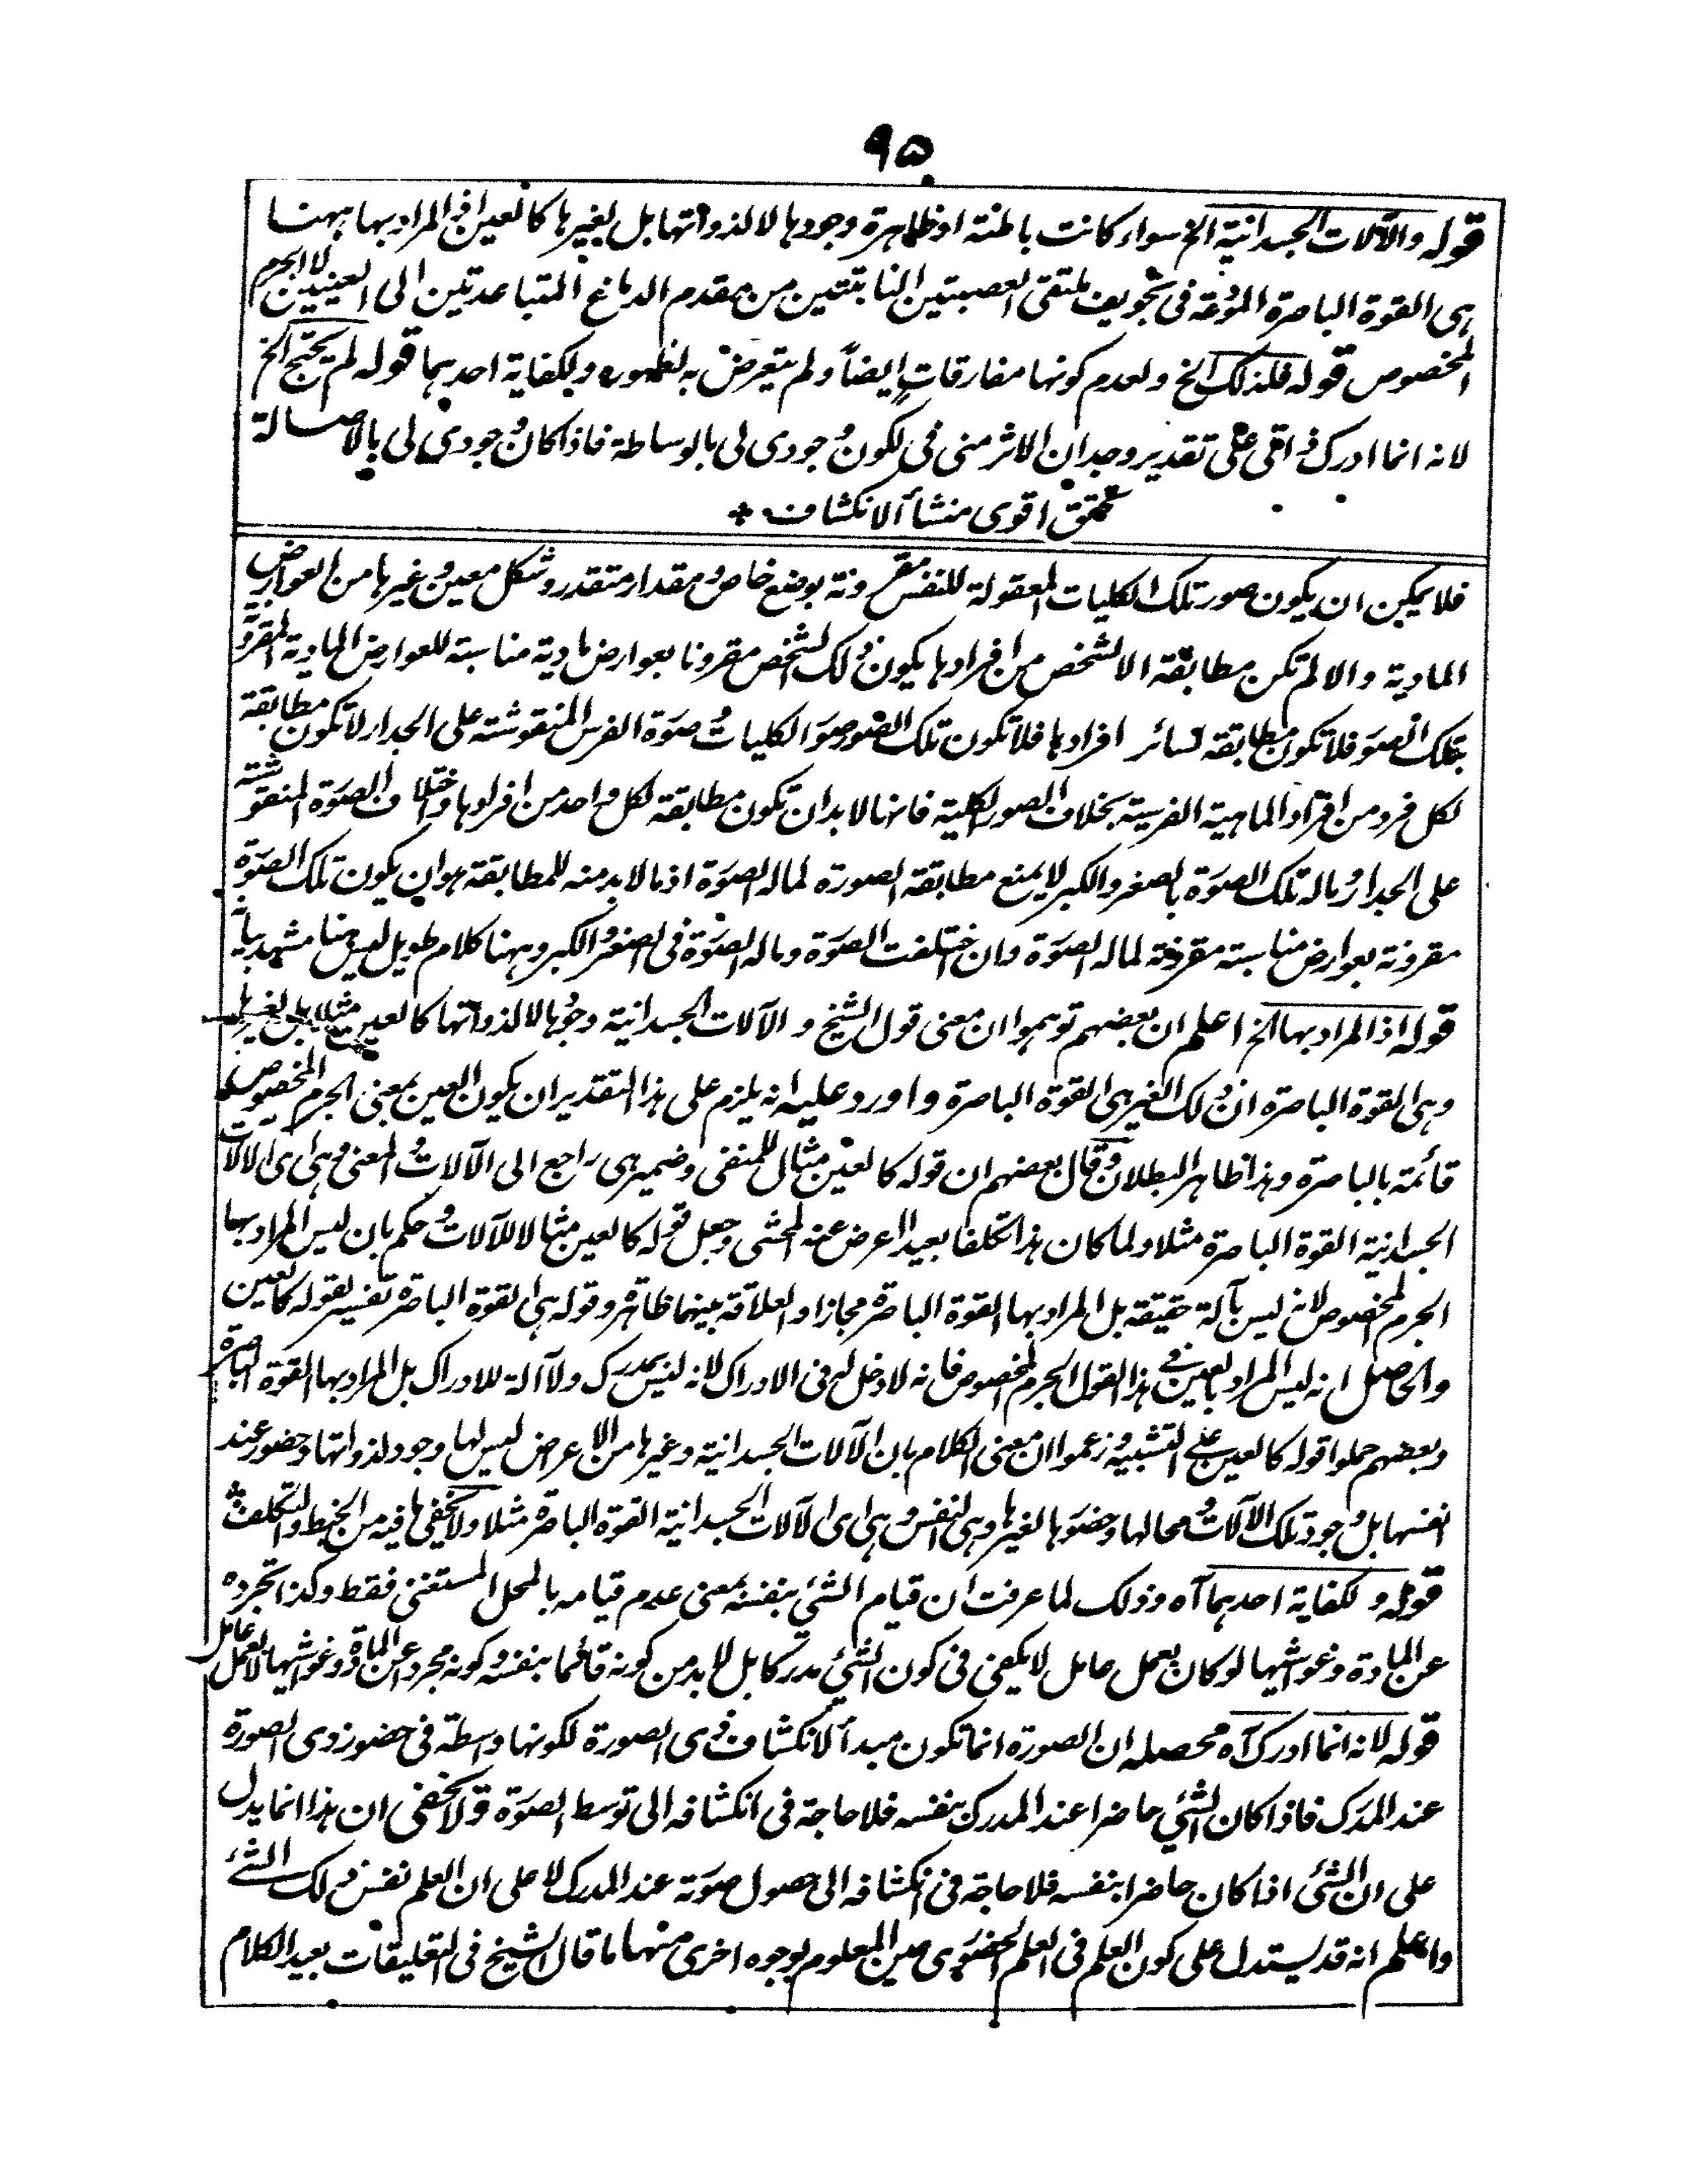 ٩٥
قوله والآلات الجسدانية الخ سواء كانت باطنة او ظاهرة وجودها لا لذواتها بل لغيرها كالعين اذ المراد بها ههنا
هى القوة الباصرة المودعة فى تجويف ملتقى العصبتين النابتتين من مقدم الدماغ المتباعدتين الى العينين لا الجرم
المخصوص قوله فلذلك الخ ولعدم كونها مفارقات ايضاً ولم يتعرض به لظهوره ولكفاية احدهما قوله لم يحتج الخ
لانه انما ادرك ذاتى على تقدير وجدان الاثر منى فى لكون وجودى لى بالوساطة فاذا كان وجودى لى بالاصالة
تحقق اقوى منشأ الانكشاف +
فلا يمكن ان يكون صور تلك الكليات المعقولة للنفس مقرونة بوضع خاص ومقدار متقدر وشكل معين وغيرها من العوارض
المادية والا لم تكن مطابقة الا لشخص من افرادها يكون ذلك الشخص مقرونا بعوارض مادية مناسبة للعوارض المادية المقرونة
بتلك الصور فلا تكون مطابقة لسائر افرادها فلا تكون تلك الصور صور الكليات وصورة الفرس المنقوشة على الجدار لا تكون مطابقة
لكل فرد من افراد الماهية الفرسية بخلاف الصور الكلية فانها لا بد ان تكون مطابقة لكل واحد من افرادها واختلاف الصورة المنقوشة
على الجدار وماله تلك الصورة بالصغر والكبر لا يمنع مطابقة الصورة لماله الصورة اذ ما لا بد منه للمطابقة هو ان يكون تلك الصورة
مقرونة بعوارض مناسبة مقرونة لماله الصورة وان اختلفت الصورة وماله الصورة فى الصغر والكبر وههنا كلام طويل ليس هنا مشهد بيانه
قوله اذ المراد بها الخ اعلم ان بعضهم توهموا ان معنى قول الشيخ والآلات الجسدانية وجودها لا لذواتها كالعين مثلا بل لغيرها
وهى القوة الباصرة ان ذلك الغير هى القوة الباصرة واورد عليه انه يلزم على هذا التقدير ان يكون العين بمعنى الجرم المخصوص
قائمة بالباصرة وهذا ظاهر البطلان وقال بعضهم ان قوله كالعين مثال للمنفى وضمير هى راجع الى الآلات والمعنى وهى اى الآلات
الجسدانية القوة الباصرة مثلا ولما كان هذا تكلفا بعيدا اعرض عنه المحشى وجعل قوله كالعين مثالا للآلات وحكم بان ليس المراد بها
الجرم المخصوص لانه ليس بآلة حقيقة بل المراد بها القوة الباصرة مجازا والعلاقة بينهما ظاهرة وقوله هى القوة الباصرة تفسير لقوله كالعين
والحاصل انه ليس المراد بالعين فى هذا القول الجرم المخصوص فانه لا دخل له فى الادراك لانه ليس بمدرك ولا آلة للادراك بل المراد بها القوة الباصرة
وبعضهم حملوا قوله كالعين على التشبيه وزعموا ان معنى الكلام بان الآلات الجسدانية وغيرها من الاعراض ليس لها وجود لذواتها وحضور عند
انفسها بل وجود تلك الآلات محالها وحضورها لغيرها وهى النفس وهى اى الآلات الجسدانية القوة الباصرة مثلا ولا يخفى ما فيه من الخبط والتكلف
قوله ولكفاية احدهما آه وذلك لما عرفت ان قيام الشئ بنفسه بمعنى عدم قيامه بالمحل المستغنى فقط وكذا تجرده
عن المادة وغواشيها لو كان بعمل عامل لا يكفى فى كون الشئ مدركا بل لا بد من كونه قائما بنفسه وكونه مجردا عن المادة وغواشيها لا بعمل عامل
قوله لانه انما ادرك آه محصله ان الصورة انما تكون مبدأ لانكشاف ذى الصورة لكونها واسطة فى حضور ذى الصورة
عند المدرك فاذا كان الشئ حاضرا عند المدرك بنفسه فلا حاجة فى انكشافه الى توسط الصورة ولا يخفى ان هذا انما يدل
على ان الشئ اذا كان حاضرا بنفسه فلا حاجة فى انكشافه الى حصول صورته عند المدرك لا على ان العلم نفس ذلك الشئ
واعلم انه قد يستدل على كون العلم فى العلم الحضورى عين المعلوم بوجوه اخرى منها ما قال الشيخ فى التعليقات بعيد الكلام